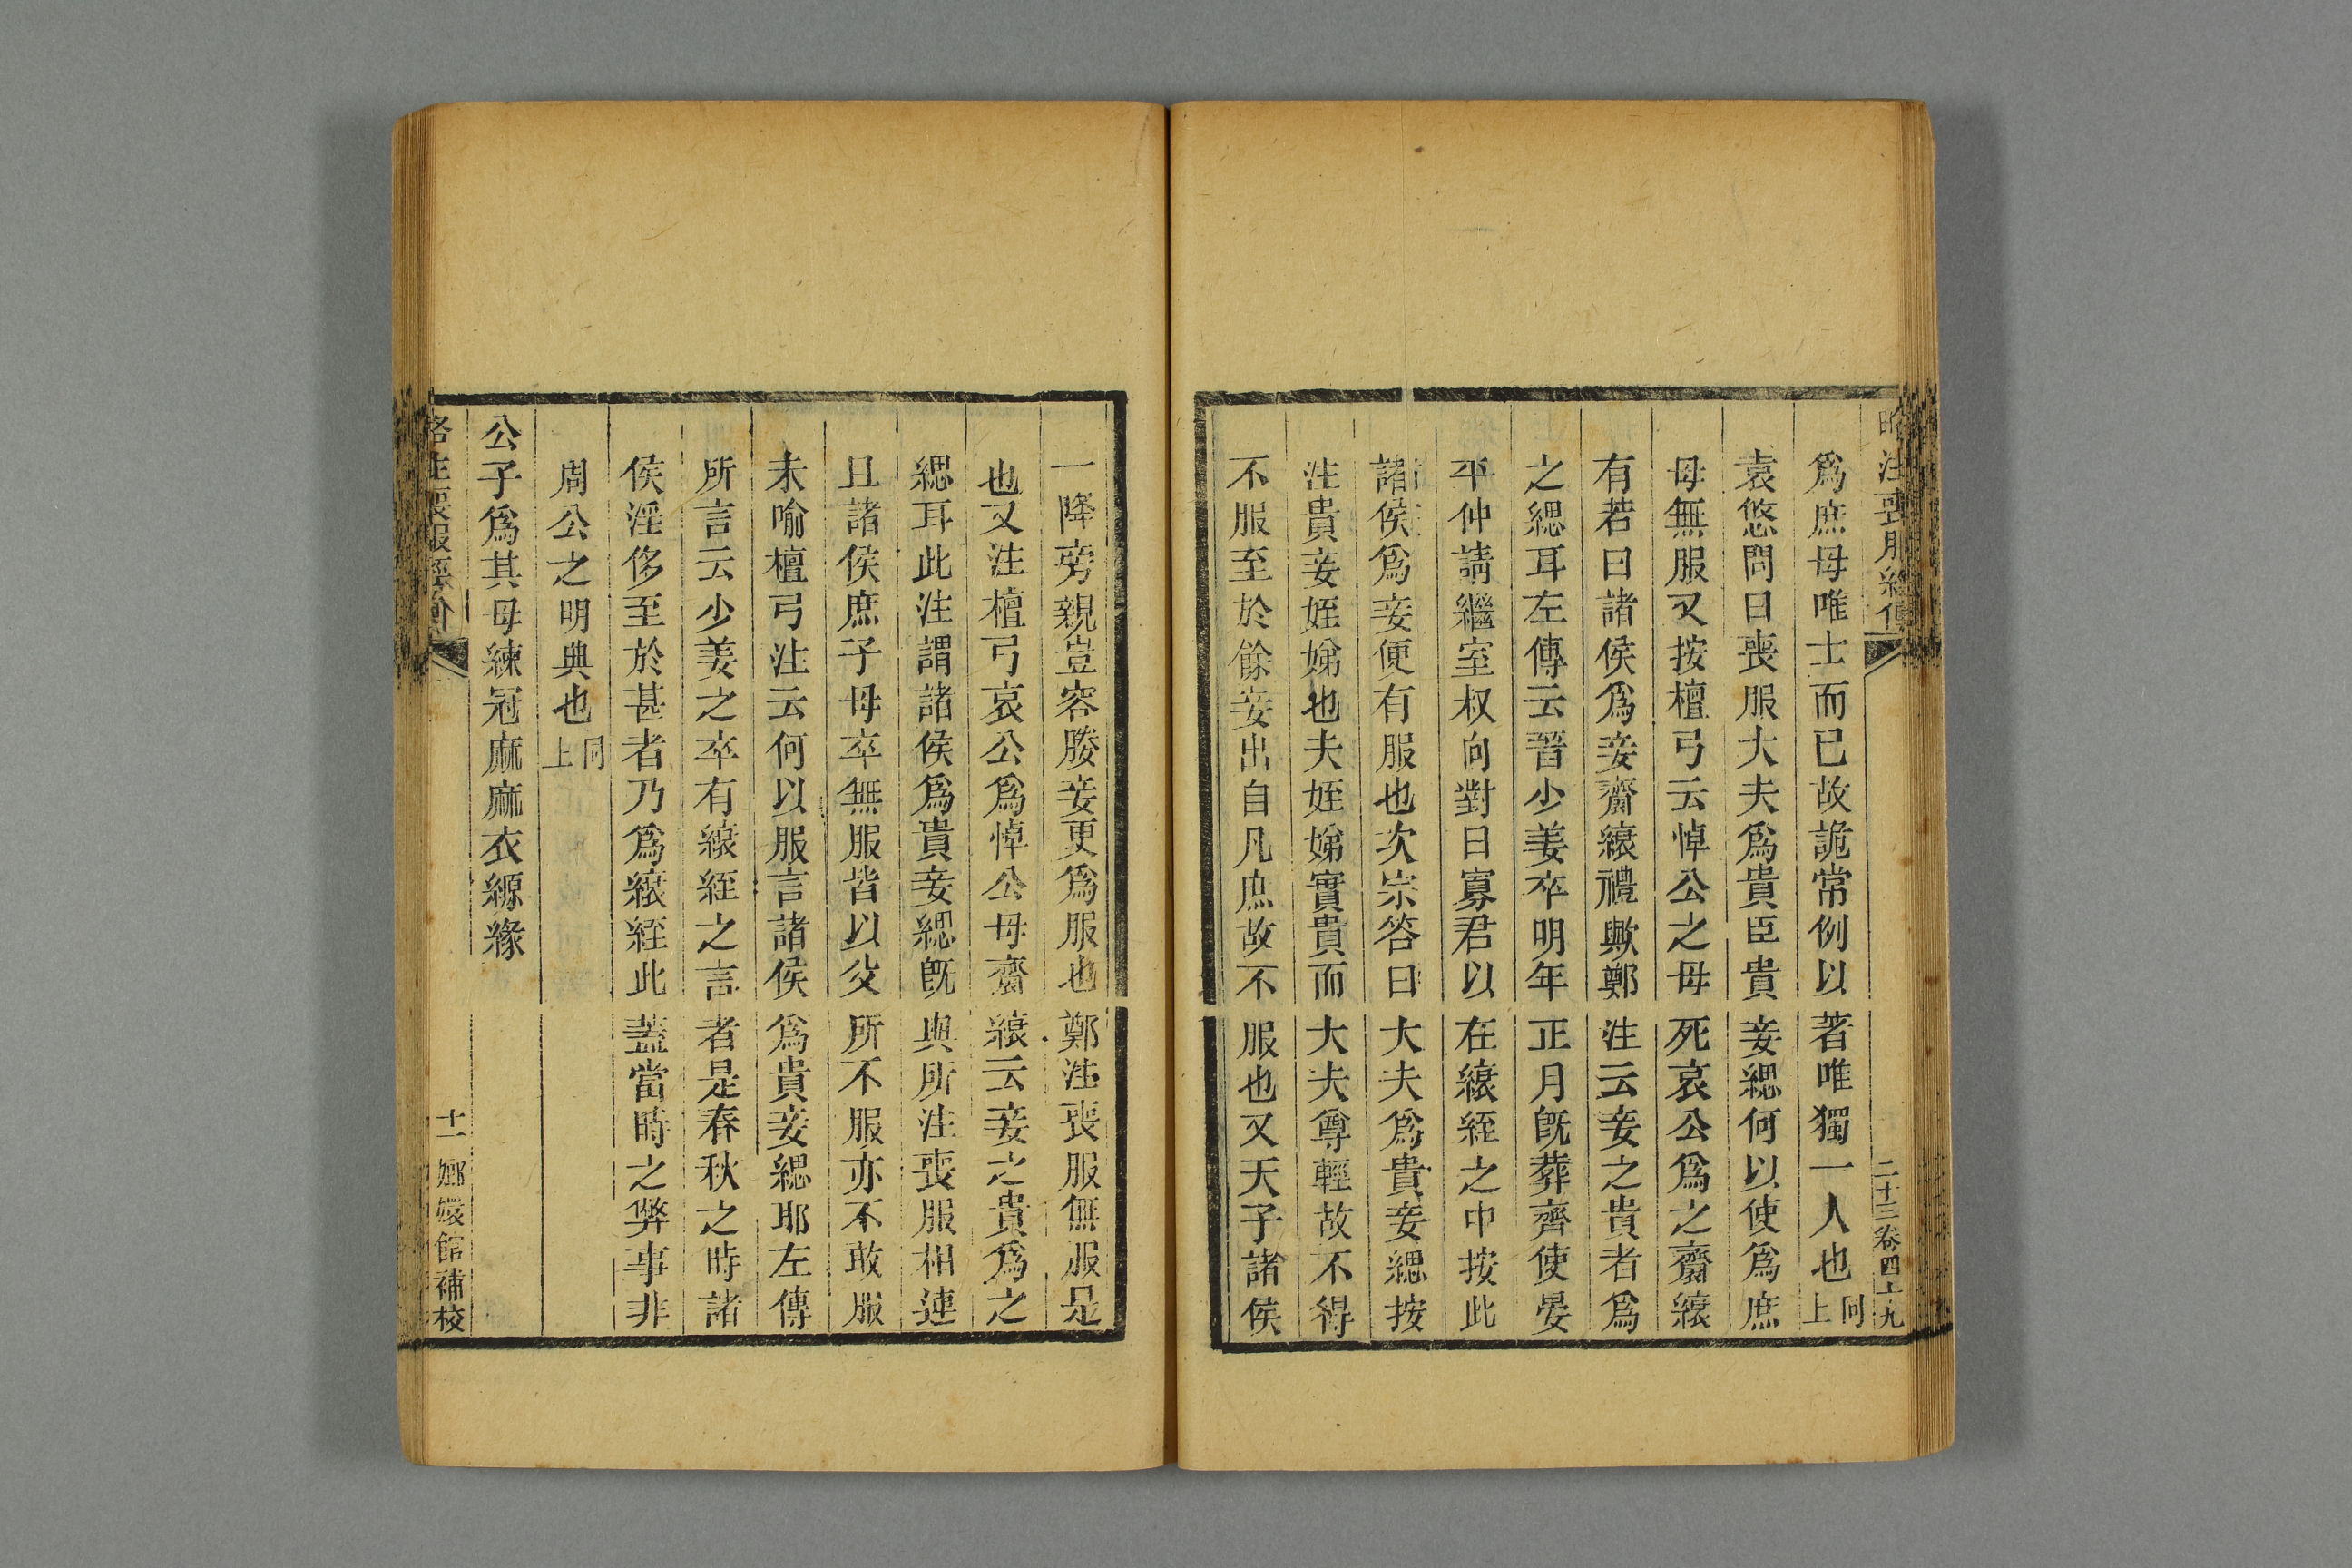 略注喪服經傳
二十三卷四十九
爲庶母唯士而已故詭常例以著唯獨一人也同上
袁悠問曰喪服大夫爲貴臣貴妾緦何以使爲庶
母無服又按檀弓云悼公之母死哀公爲之齋縗
有若曰諸侯爲妾齋縗禮歟鄭注云妾之貴者爲
之緦耳左傳云晉少姜卒明年正月旣葬齊使晏
平仲請繼室叔向對曰寡君以在縗絰之中按此
諸侯爲妾便有服也次宗答曰大夫爲貴妾緦按
注貴妾姪娣也夫姪娣實貴而大夫尊輕故不得
不服至於餘妾出自凡庶故不服也又天子諸侯
一降旁親豈容媵妾更爲服也鄭注喪服無服是
也又注檀弓哀公爲悼公母齋縗云妾之貴爲之
緦耳此注謂諸侯爲貴妾緦旣與所注喪服相違
且諸侯庶子母卒無服皆以父所不服亦不敢服
未喻檀弓注云何以服言諸侯爲貴妾緦耶左傳
所言云少姜之卒有縗絰之言者是春秋之時諸
侯淫侈至於甚者乃爲縗絰此蓋當時之弊事非
周公之明典也同上
公子爲其母練冠麻麻衣縓緣
略注喪服經傳
十一 嫏嬛館補校